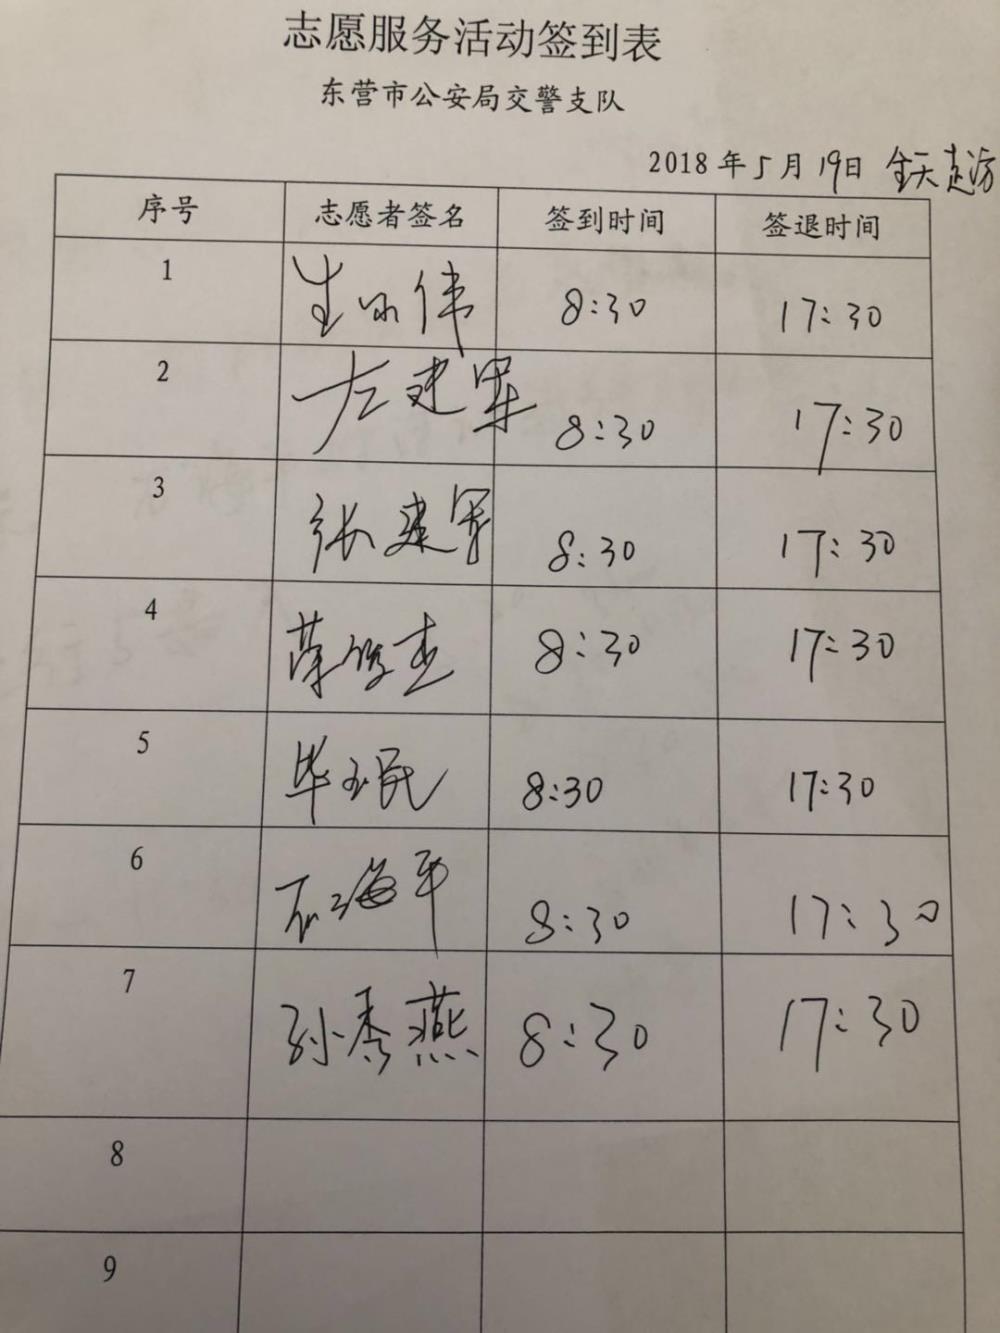 志愿服务活动签到表
东营市公安局交警支队
2018年5月19日 全天走访
序号 志愿者签名 签到时间 签退时间
1 生永伟 8:30 17:30
2 左建军 8:30 17:30
3 张建军 8:30 17:30
4 薛俊杰 8:30 17:30
5 毕玉民 8:30 17:30
6 石海平 8:30 17:30
7 孙秀燕 8:30 17:30
8
9